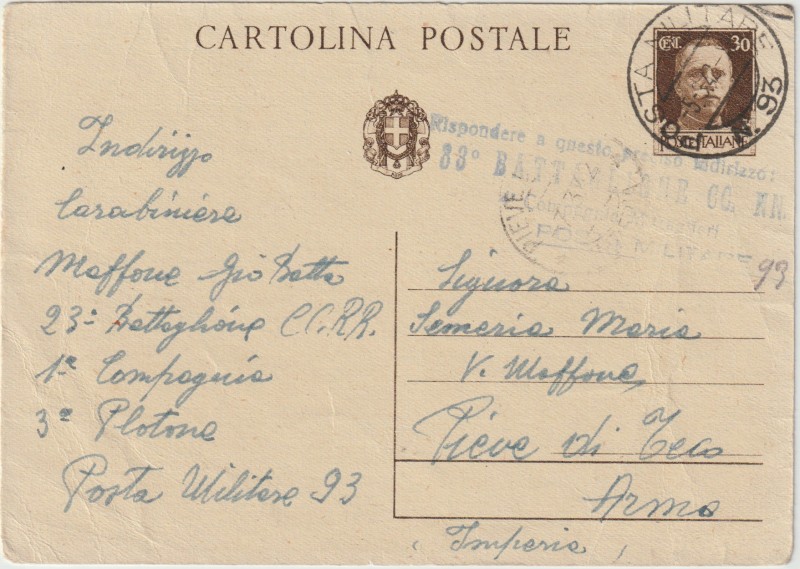 CARTOLINA POSTALE
CENT. 30
POSTE ITALIANE
POSTA MILITARE
N° 93
Rispondere a questo preciso indirizzo:
83° BATTAGLIONE CC. NN.
Compagnia
POSTA MILITARE 93
PIEVE
Indirizzo
Carabiniere
Maffone Gio Batta
23° Battaglione CC.RR.
1ª Compagnia
3º Plotone
Posta Militare 93
Signora
Semeria Maria
V. Maffone
Pieve di Teco
Armo
(Imperia)